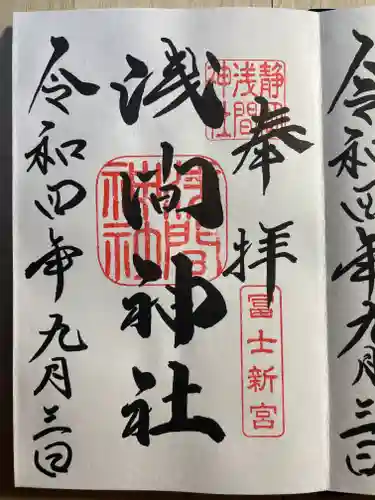 奉拝
静岡
浅間
神社
浅間神社
浅間
神社
富士新宮
令和四年九月三日
令和四年九月三日